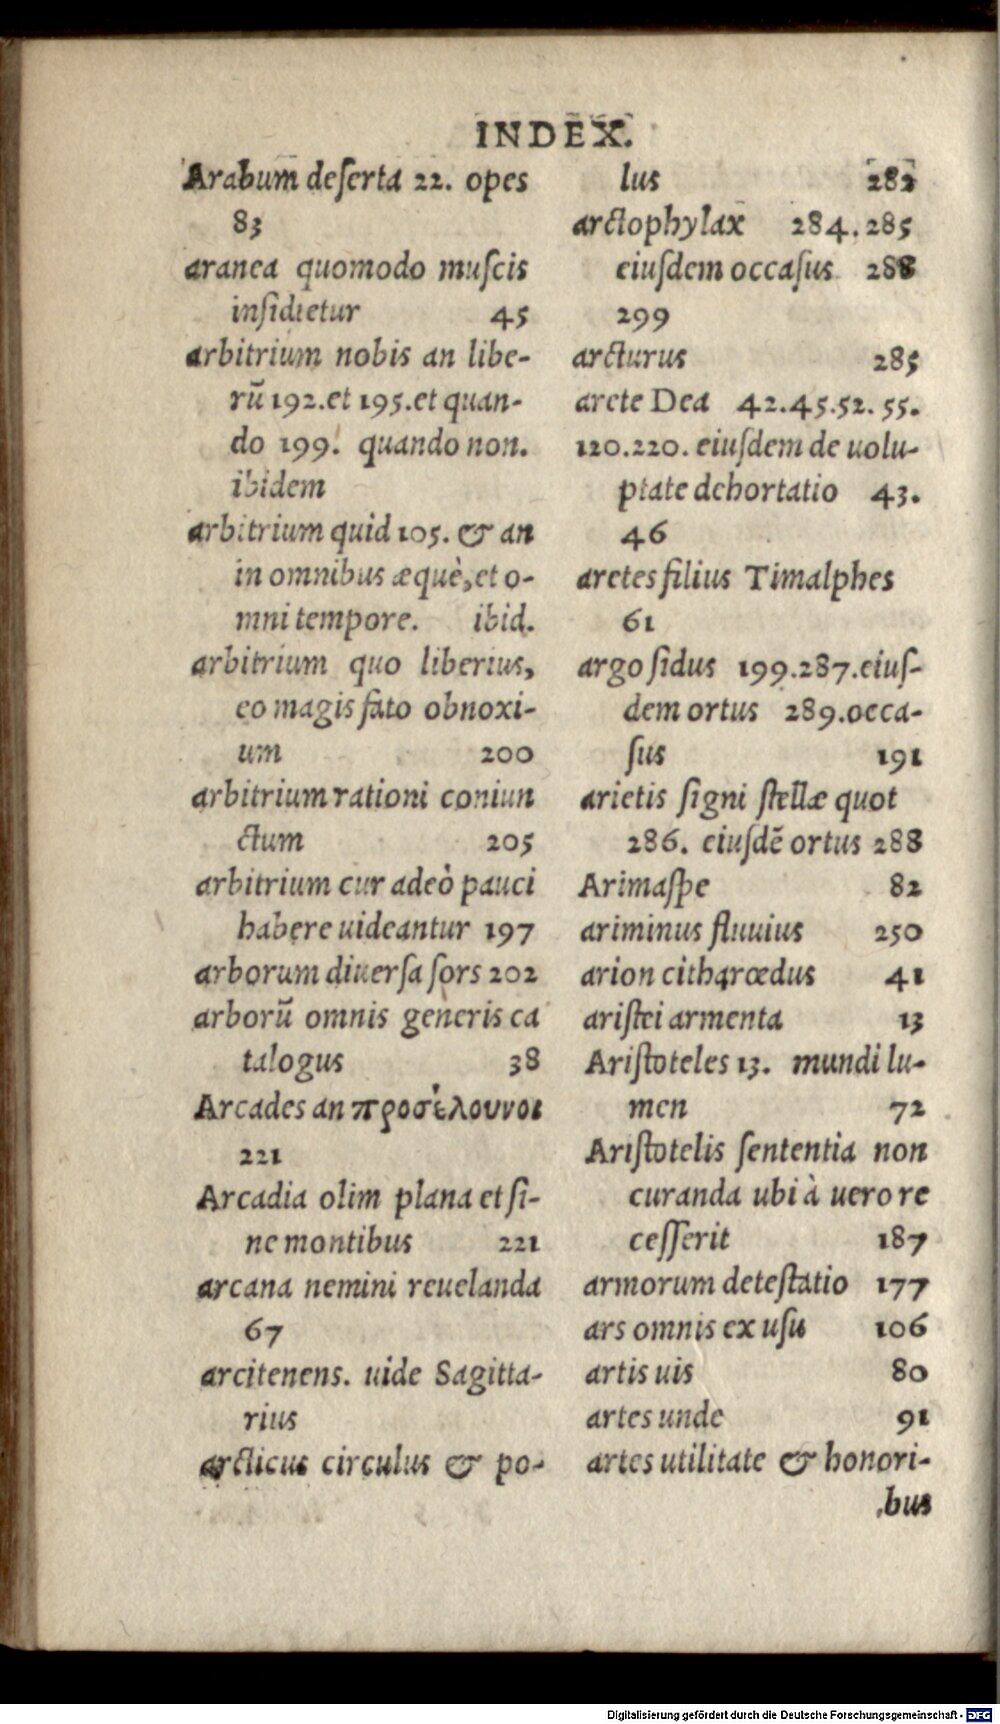 INDEX.
Arabum deserta 22. opes
83
aranea quomodo muscis
insidietur 45
arbitrium nobis an libe-
rũ 192.et 195.et quan-
do 199. quando non.
ibidem
arbitrium quid 105. & an
in omnibus æquè, et o-
mni tempore. ibid.
arbitrium quo liberius,
eo magis fato obnoxi-
um 200
arbitrium rationi coniun
ctum 205
arbitrium cur adeò pauci
habere uideantur 197
arborum diuersa sors 202
arborũ omnis generis ca
talogus 38
Arcades an προσέλουνοι
221
Arcadia olim plana et si-
ne montibus 221
arcana nemini reuelanda
67
arcitenens. uide Sagitta-
rius
arcticus circulus & po-
lus 282
arctophylax 284.285
eiusdem occasus 288
299
arcturus 285
arete Dea 42.45.52.55.
120.220. eiusdem de uolu-
ptate dehortatio 43.
46
aretes filius Timalphes
61
argo sidus 199.287.eius-
dem ortus 289.occa-
sus 191
arietis signi stellæ quot
286. eiusdẽ ortus 288
Arimaspe 82
ariminus fluuius 250
arion citharœdus 41
aristei armenta 13
Aristoteles 13. mundi lu-
men 72
Aristotelis sententia non
curanda ubi à uero re
cesserit 187
armorum detestatio 177
ars omnis ex usu 106
artis uis 80
artes unde 91
artes utilitate & honori-
bus
Digitalisierung gefördert durch die Deutsche Forschungsgemeinschaft - DFG